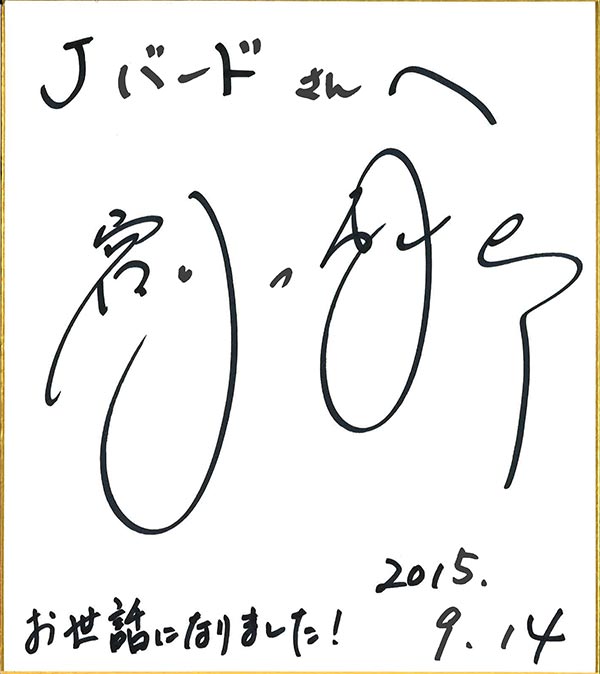 Jバードさんへ
お世話になりました!
2015.
9.14